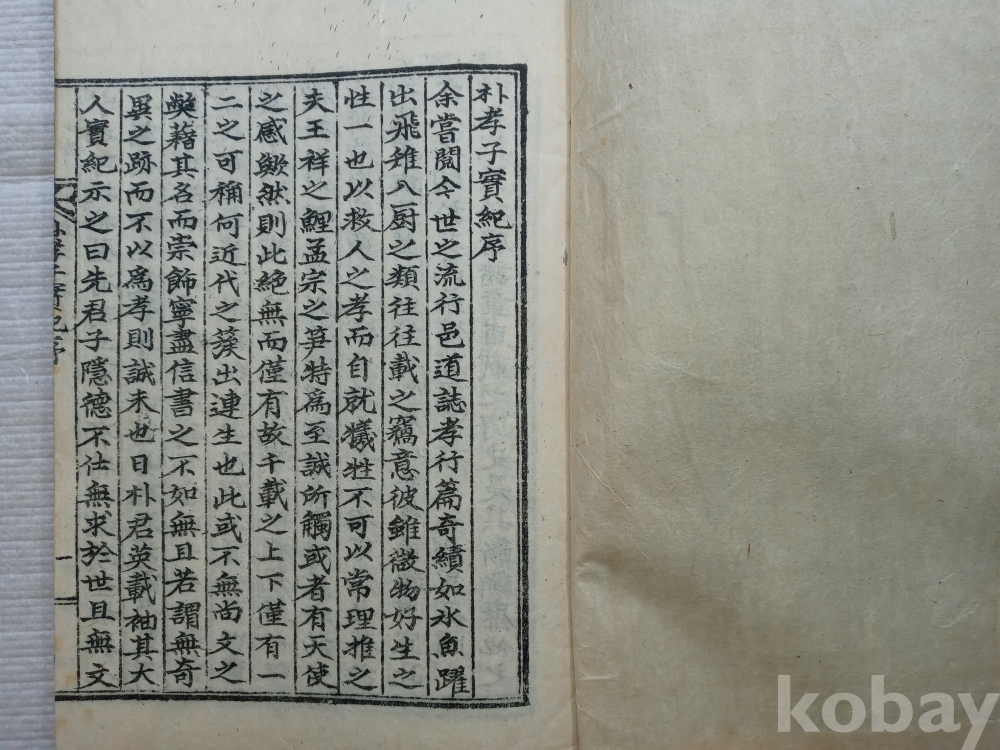 朴孝子實紀序
余嘗閱今世之流行邑道誌孝行篇奇績如氷魚躍
出飛雉入厨之類往往載之竊意彼雖微物好生之
性一也以救人之孝而自就犧牲不可以常理推之
夫王祥之鯉孟宗之笋特爲至誠所觸或者有天使
之感歟然則此絶無而僅有故千載之上下僅有一
二之可稱何近代之葵出連生也此或不無尚文之
獘藉其名而崇飾寧盡信書之不如無且若謂無奇
異之跡而不以爲孝則誠未也日朴君英載袖其大
人實紀示之曰先君子隱德不仕無求於世且無文
一
kobay